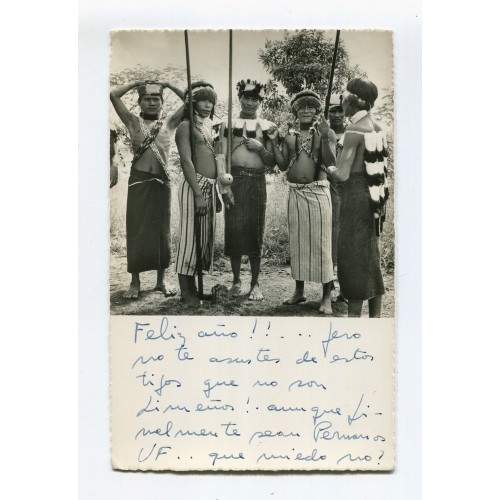 Feliz año!!... pero
no te asustes de estos
tipos que no son
Limeños!. aunque fi-
nalmente sean Peruanos
UF.. que miedo no?